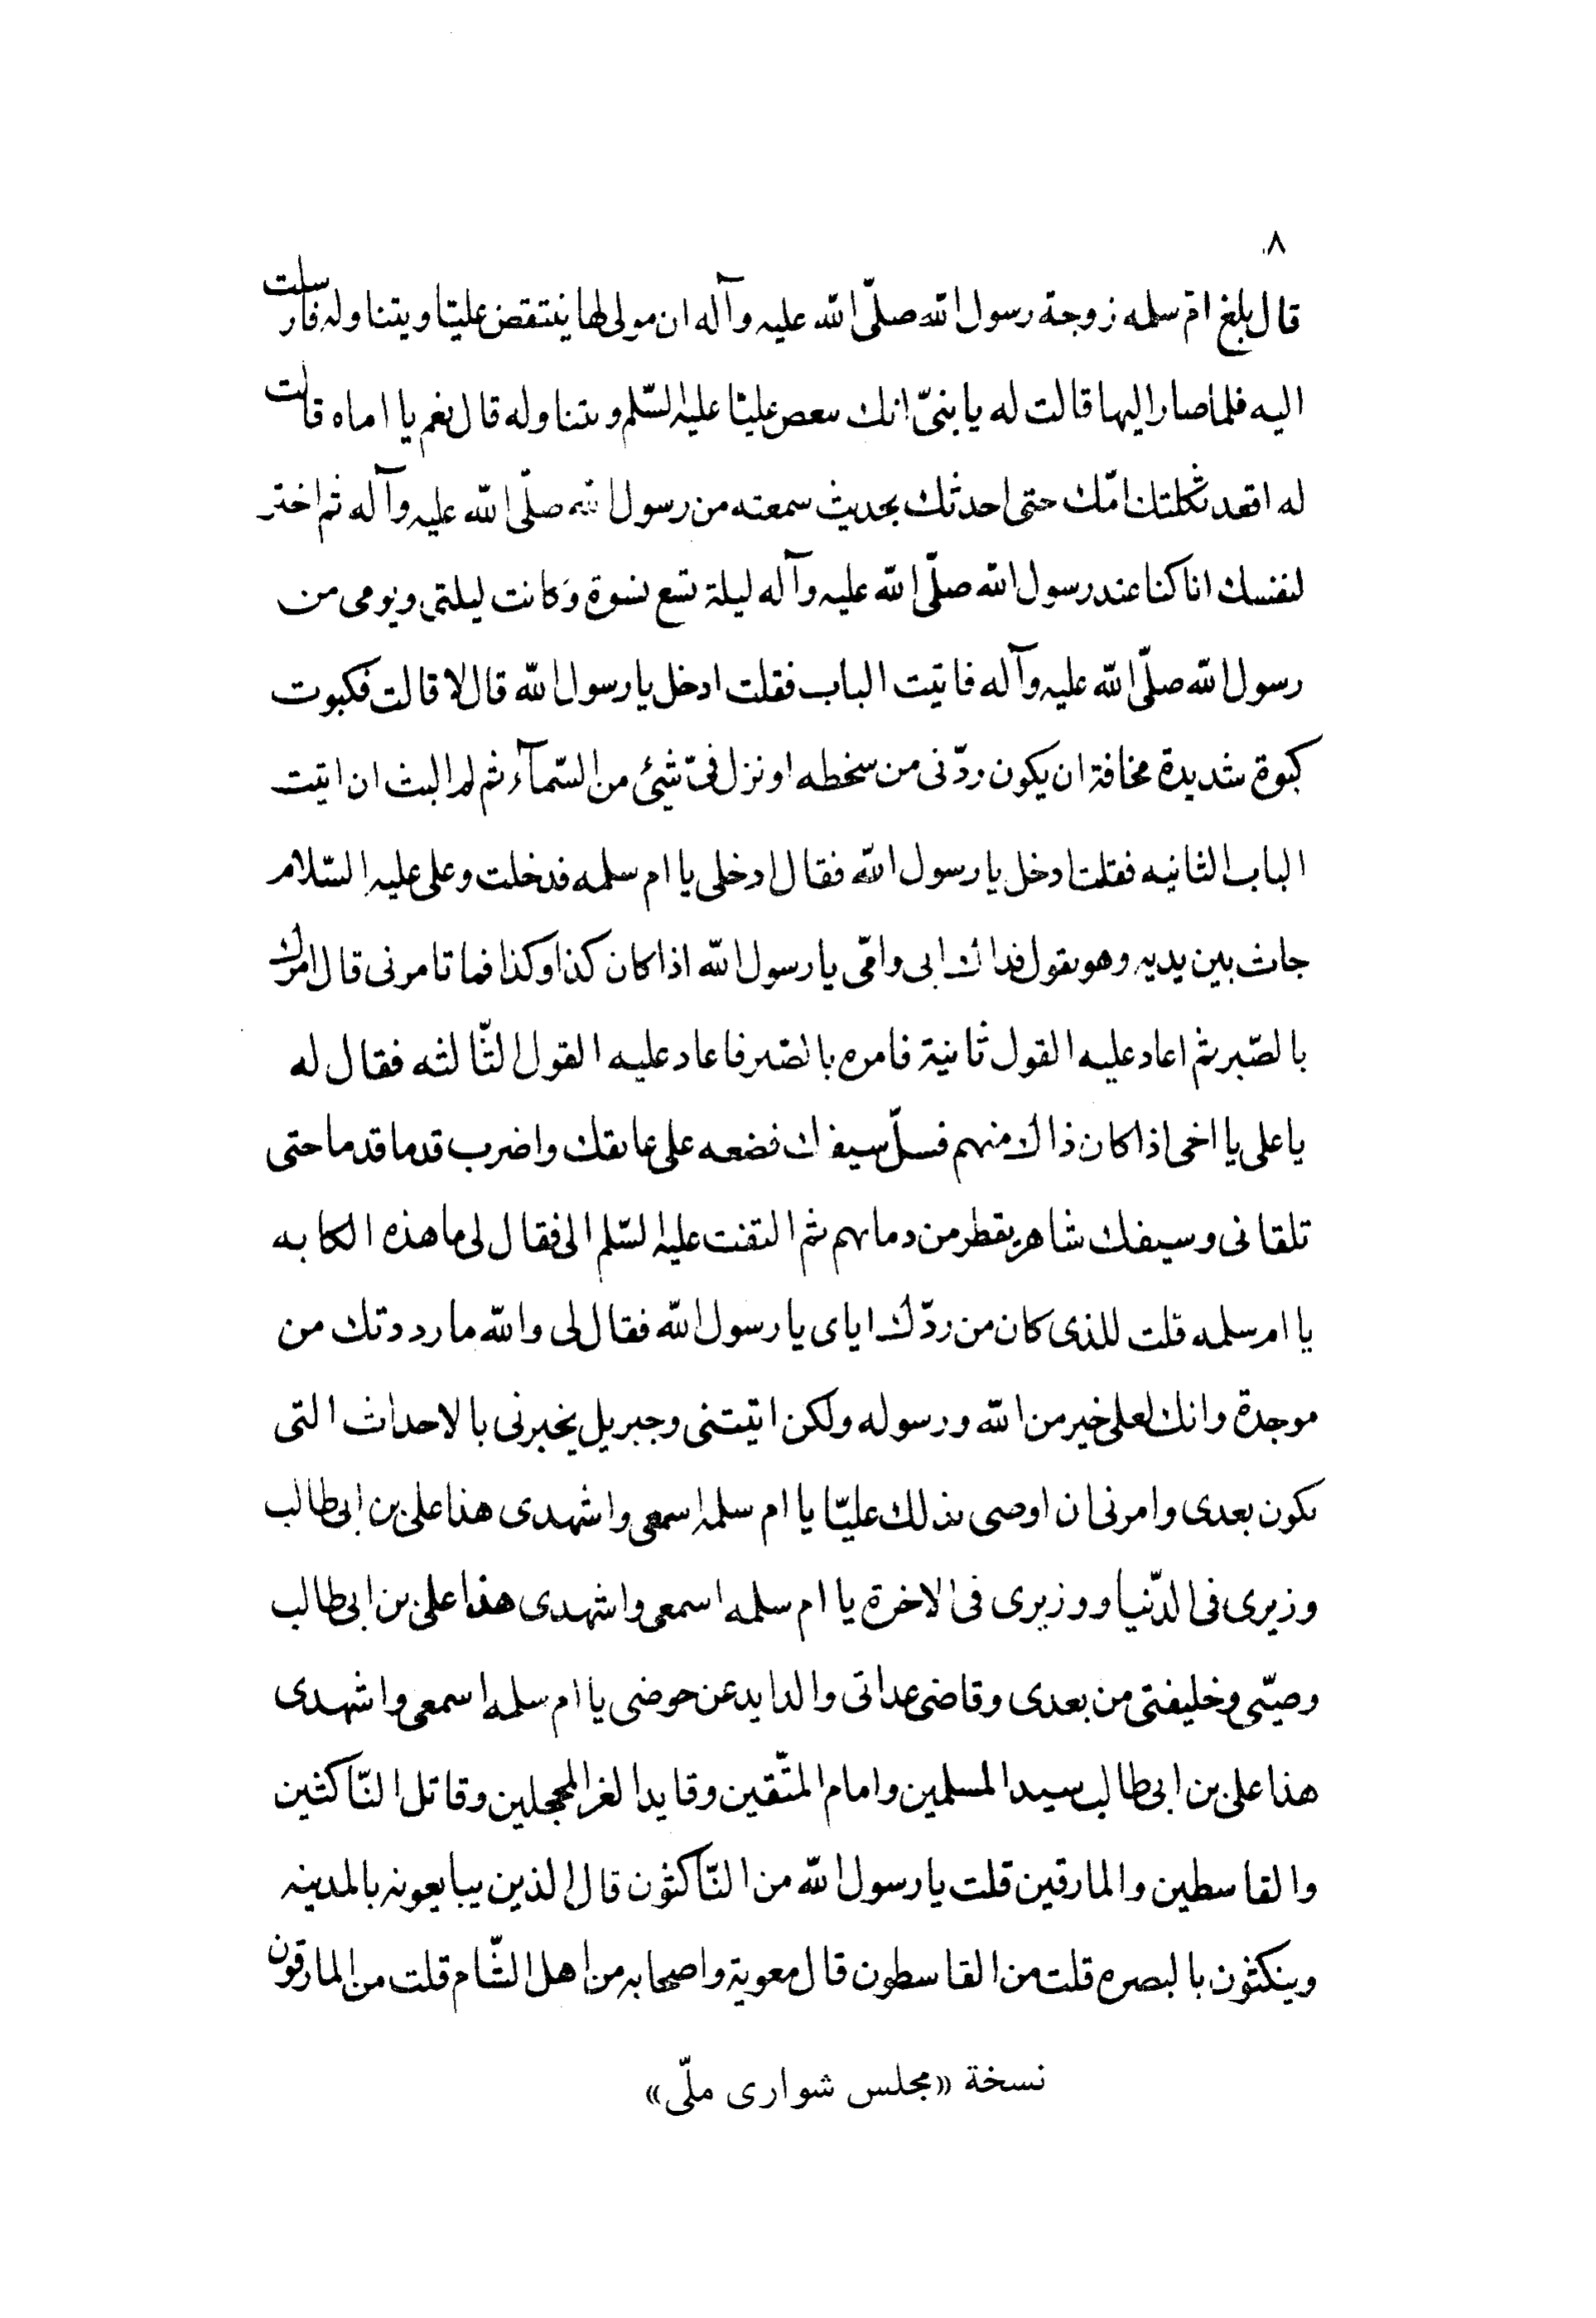 ٨
قال بلغ امّ سلمه زوجة رسول الله صلّى الله عليه وآله ان مولى لها ينتقض عليّا ويتناوله فارسلت
اليه فلما صار اليها قالت له يا بنىّ انك سعص عليّا عليه السّلم ويتناوله قال نعم يا اماه قالت
له اقعد ثكلتك امّك حتى احدثك بحديث سمعته من رسول الله صلّى الله عليه وآله ثم اختر
لنفسك انا كنا عند رسول الله صلّى الله عليه وآله ليلة تسع نسوة وَكانت ليلتى ويومى من
رسول الله صلّى الله عليه وآله فاتيت الباب فقلت ادخل يا رسول الله قال لا قالت فكبوت
كبوة شديدة مخافة ان يكون ردّنى من سخطه او نزل فىّ شيئ من السّمآء ثم لم البث ان اتيت
الباب الثانيه فقلت ادخل يا رسول الله فقال ادخلى يا ام سلمه فدخلت وعلى عليه السّلام
جاث بين يديه وهو يقول فداك ابى وامّى يا رسول الله اذا كان كذا وكذا فما تامرنى قال امرك
بالصّبر ثم اعاد عليه القول ثانية فامره بالصّبر فاعاد عليه القول الثّالثه فقال له
يا على يا اخى اذا كان ذاك منهم فسلّ سيفك فضعه على عاتقك واضرب قدما قدما حتى
تلقانى وسيفك شاهر يقطر من دمائهم ثم التفت عليه السّلم الى فقال لى ما هذه الكابه
يا ام سلمه قلت للذى كان من ردّك اياى يا رسول الله فقال لى والله ما رددتك من
موجدة وانك لعلى خير من الله ورسوله ولكن اتيتنى وجبريل يخبرنى بالاحداث التى
تكون بعدى وامرنى ان اوصى بذلك عليّا يا ام سلمه اسمعى واشهدى هذا على بن ابى طالب
وزيرى فى الدّنيا ووزيرى فى الاخرة يا ام سلمه اسمعى واشهدى هذا على بن ابى طالب
وصيّى وخليفتى من بعدى وقاضى عداتى والدايد عن حوضى يا ام سلمه اسمعى واشهدى
هذا على بن ابى طالب سيد المسلمين وامام المتّقين وقايد الغر المحجلين وقاتل النّاكثين
والقاسطين والمارقين قلت يا رسول الله من النّاكثون قال الذين يبايعونه بالمدينه
وينكثون بالبصره قلت من القاسطون قال معوية واصحابه من اهل الشّام قلت من المارقون
نسخة «مجلس شوارى ملّى»